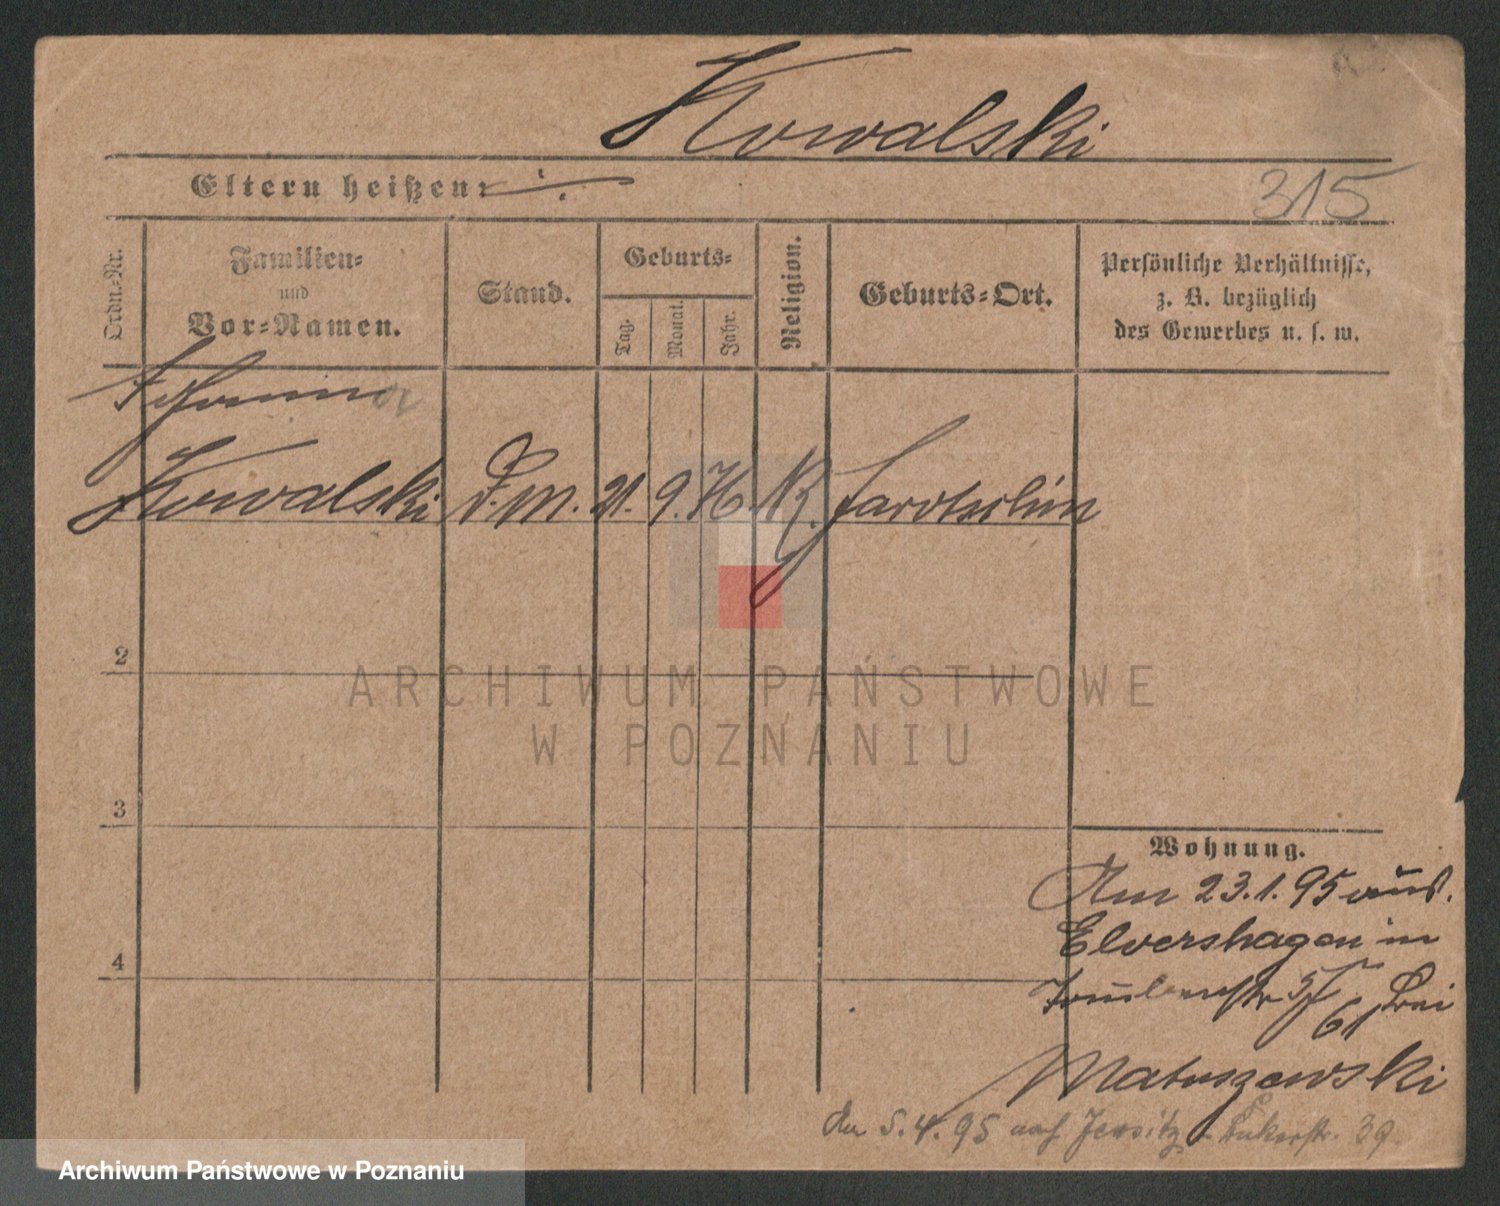 Kowalski
Eltern heißen:
315
Ordn.-Nr.
Familien-
und
Vor-Namen.
Stand.
Geburts-
Tag.
Monat.
Jahr.
Religion.
Geburts-Ort.
Persönliche Verhältnisse,
z. B. bezüglich
des Gewerbes u. s. w.
Kowalski D. M. 21. 9. 76.
2
ARCHIWUM PAŃSTWOWE
W POZNANIU
3
Wohnung.
Am 23.1.95 aus
Elvershagen in
bei
61
Matuszewski
4
Am 5.4.95 nach Jersitz 39
Archiwum Państwowe w Poznaniu